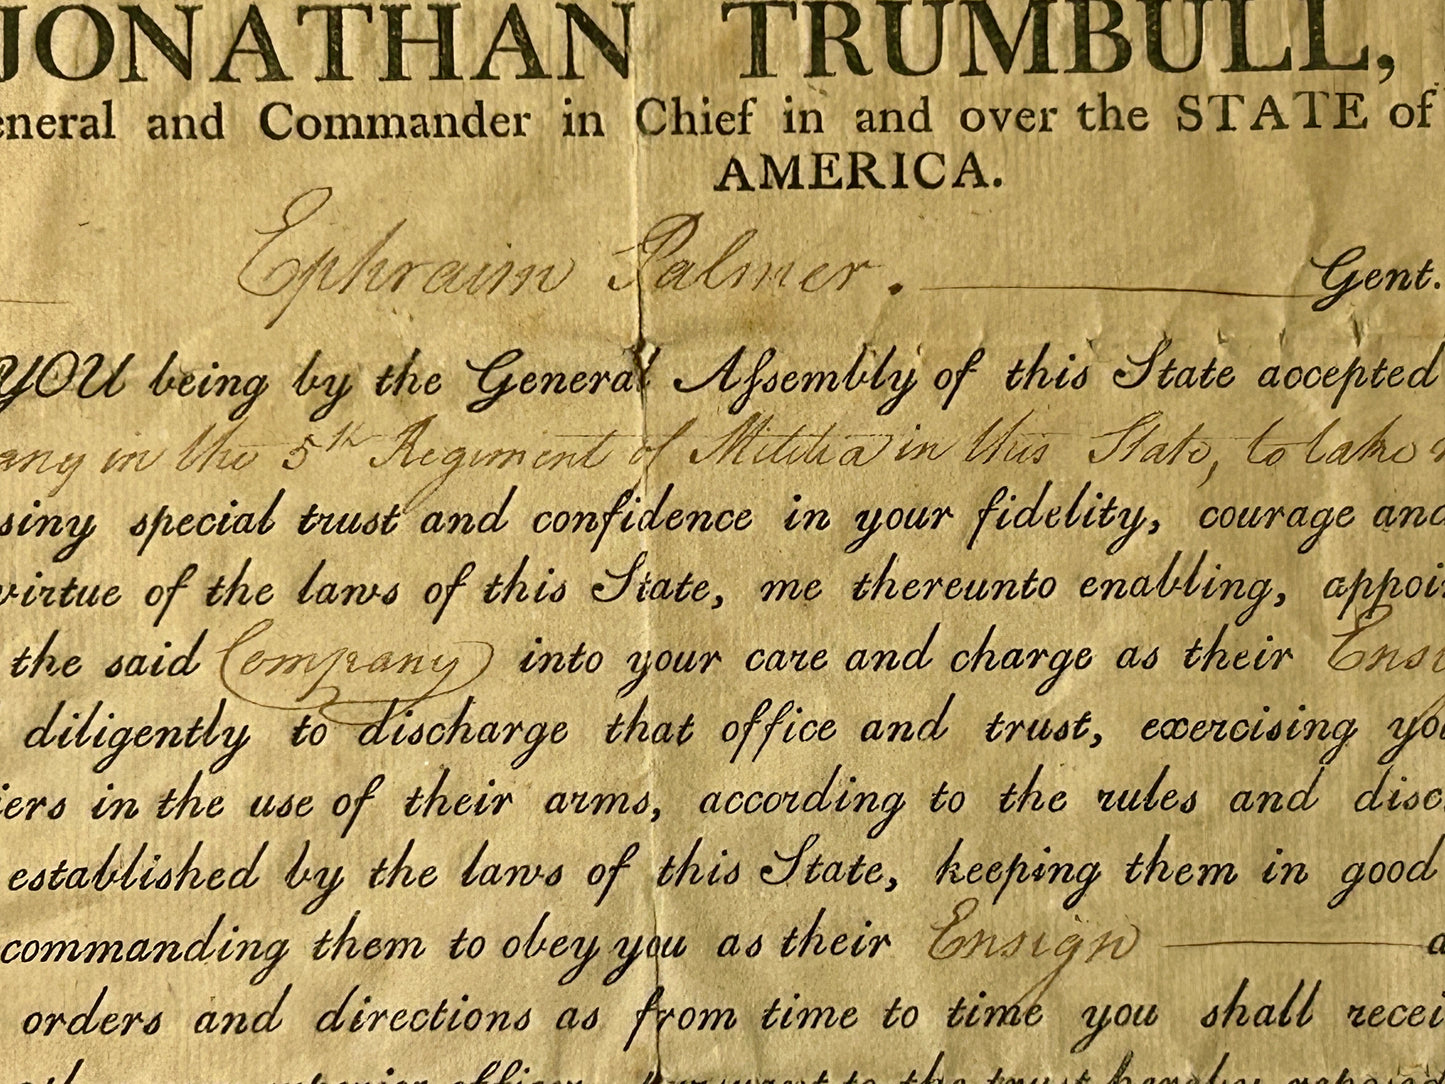 JONATHAN TRUMBULL,
eneral and Commander in Chief in and over the STATE of
AMERICA.
Ephraim Palmer. Gent.
YOU being by the General Aſsembly of this State accepted
any in the 5th Regiment of Militia in this State, to take
siny special trust and confidence in your fidelity, courage and
virtue of the laws of this State, me thereunto enabling, appoin
the said Company into your care and charge as their Ensi
diligently to discharge that office and trust, exercising you
iers in the use of their arms, according to the rules and disc
established by the laws of this State, keeping them in good
commanding them to obey you as their Ensign a
orders and directions as from time to time you shall recei
superior officer, pursuant to the trust hereby repos